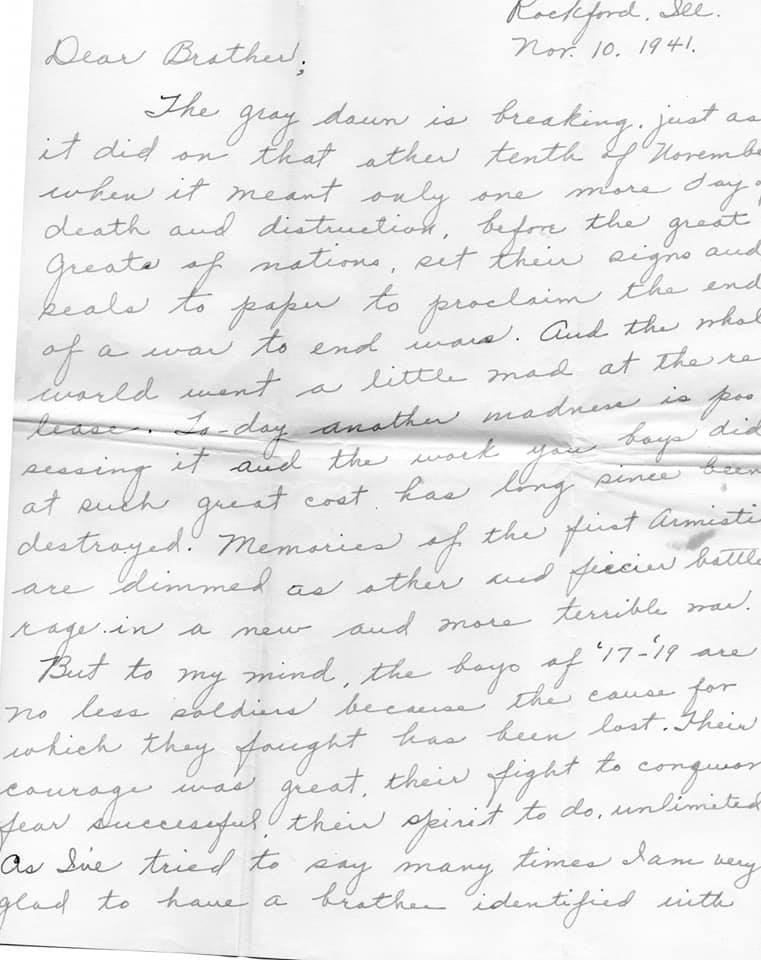 Rockford, Ill.
Nov. 10, 1941.
Dear Brother;
The gray dawn is breaking, just as
it did on that other tenth of Novembe
when it meant only one more day o
death and distruction, before the great
Greats of nations, set their signs and
seals to paper to proclaim the end
of a war to end wars. And the whol
world went a little mad at the re
lease. To-day another madness is pos
sessing it and the work you boys did
at such great cost has long since been
destroyed. Memories of the first Armisti
are dimmed as other and fiercier battle
rage in a new and more terrible war.
But to my mind, the boys of '17-'19 are
no less soldiers because the cause for
which they fought has been lost. Their
courage was great, their fight to conquor
fear successful, their spirit to do, unlimited
As I've tried to say many times I am very
glad to have a brother identified with